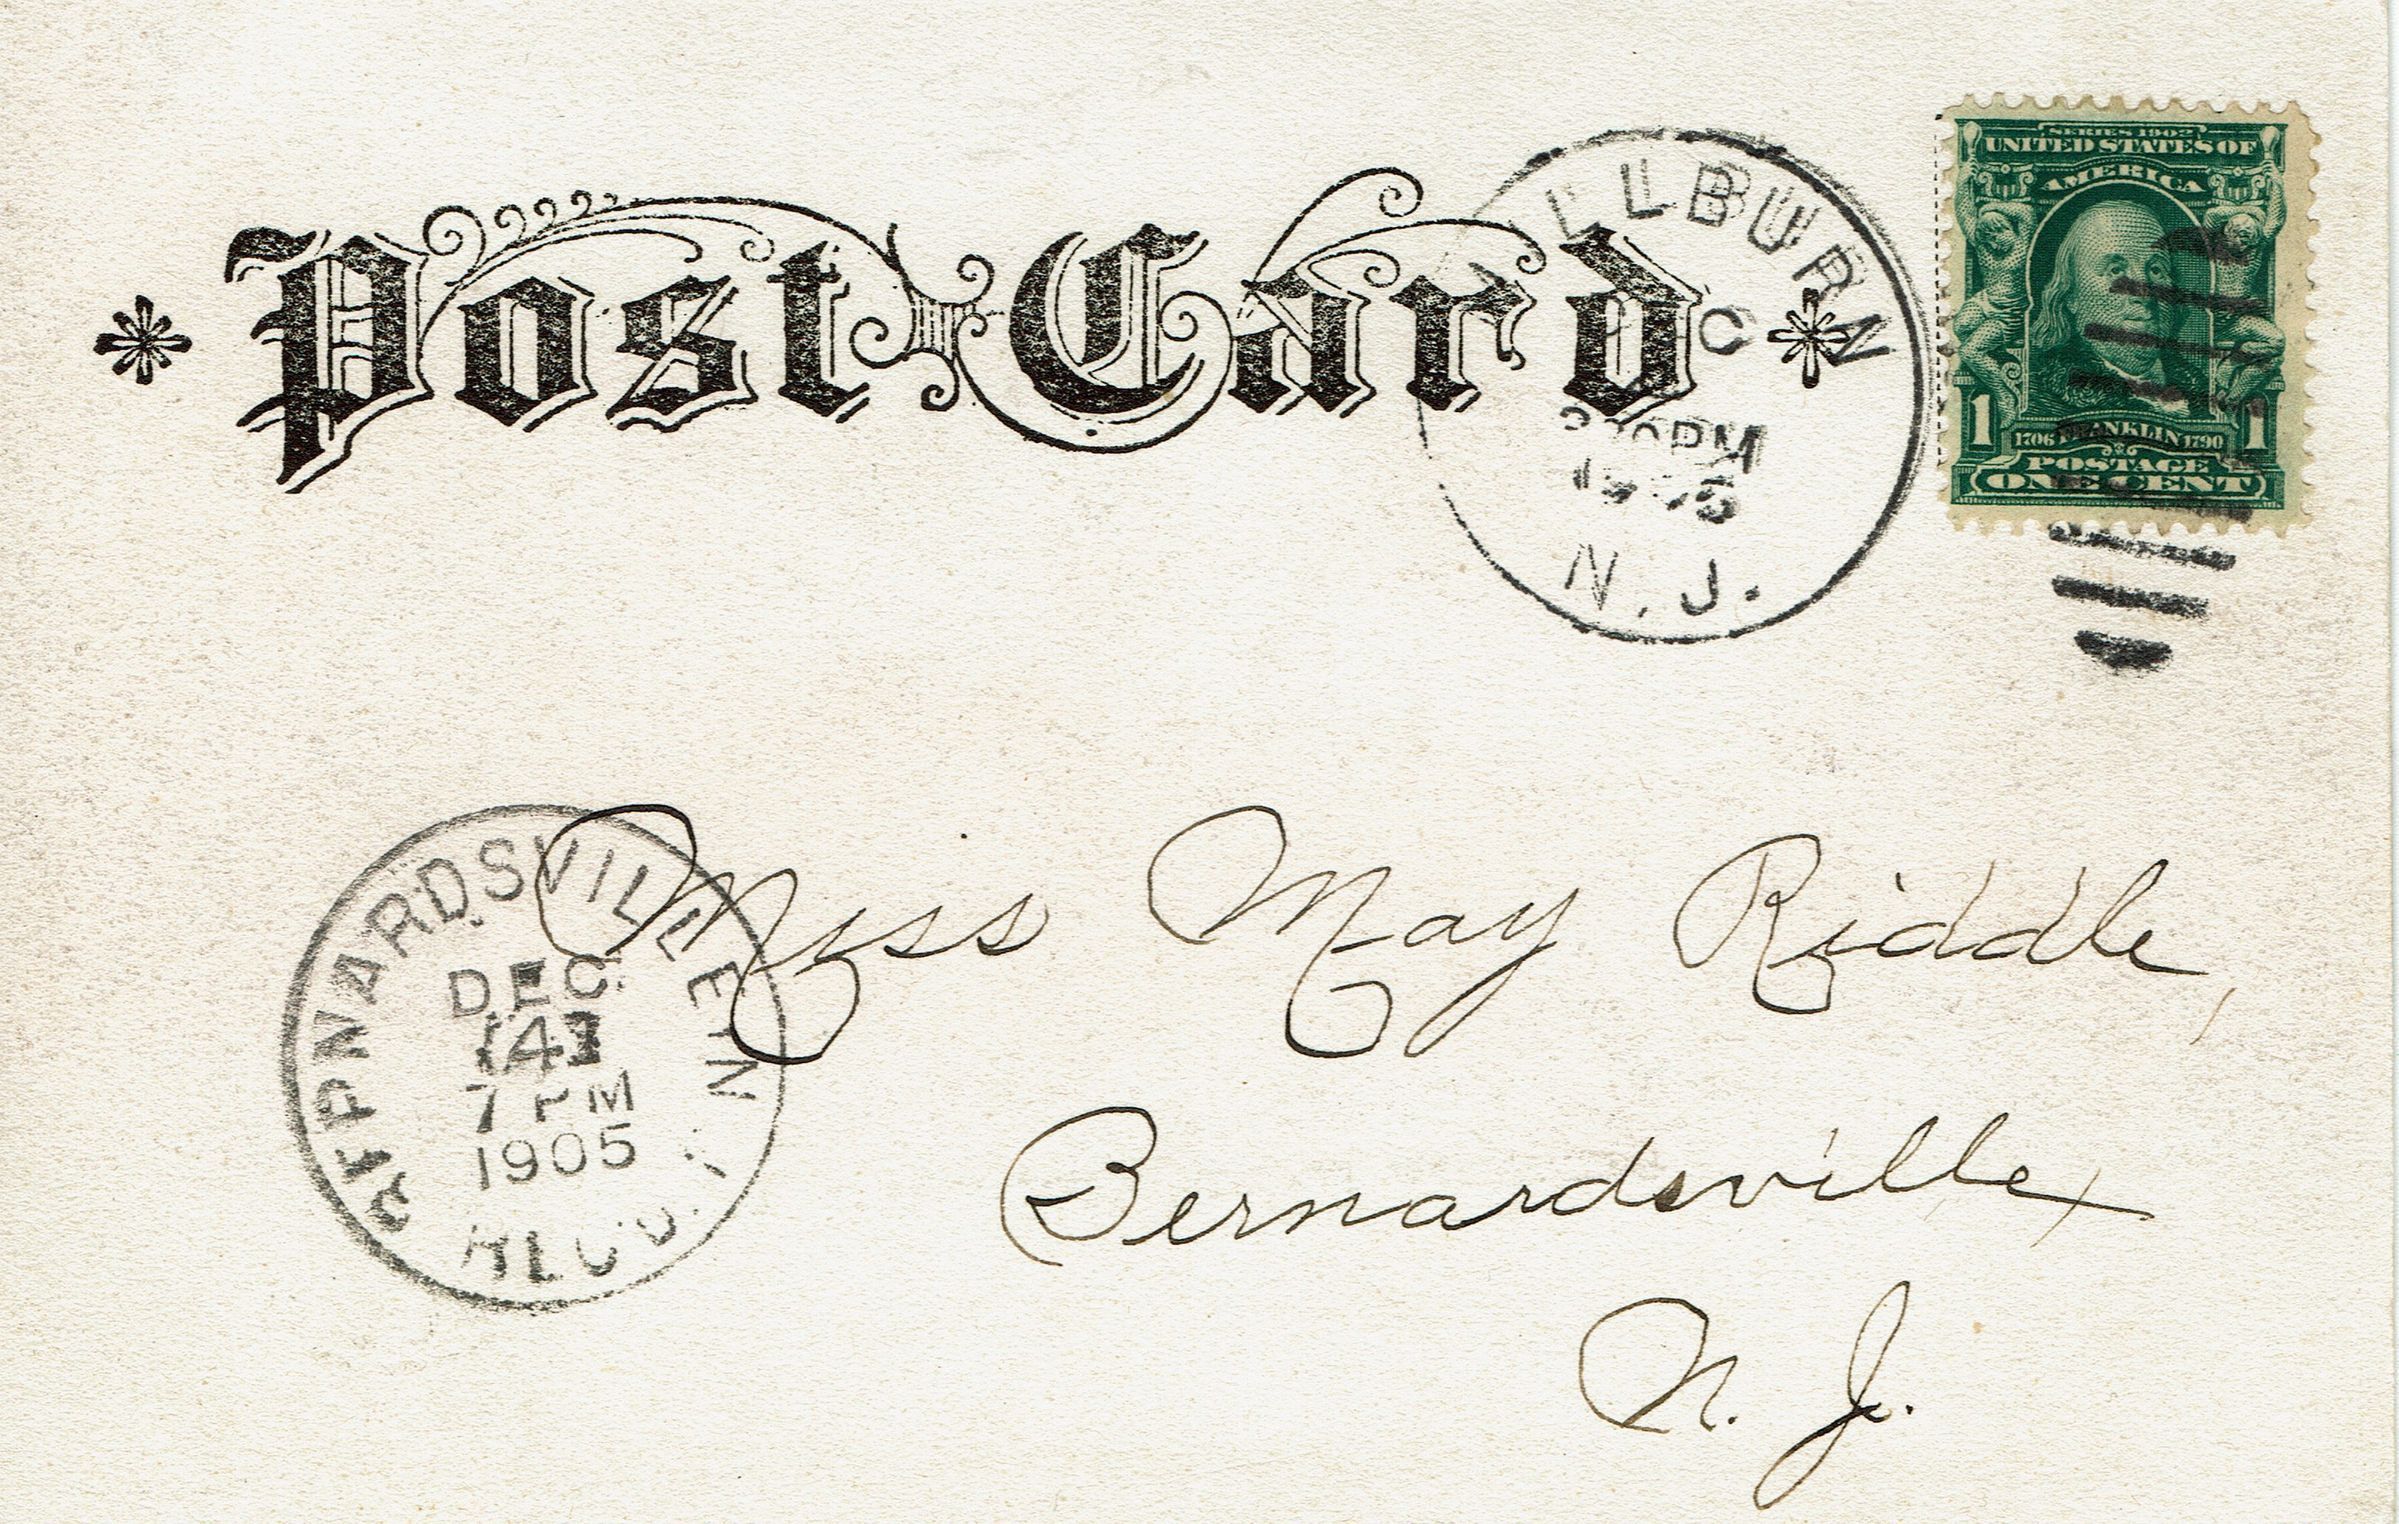 Post Card
MILLBURN
30 PM
1905
N.J.
SERIES 1902
UNITED STATES OF
AMERICA
1 1706 FRANKLIN 1790 1
POSTAGE
ONE CENT
BERNARDSVILLE N
DEC
14
7 PM
1905
REC'D.
Miss May Riddle,
Bernardsville,
N. J.